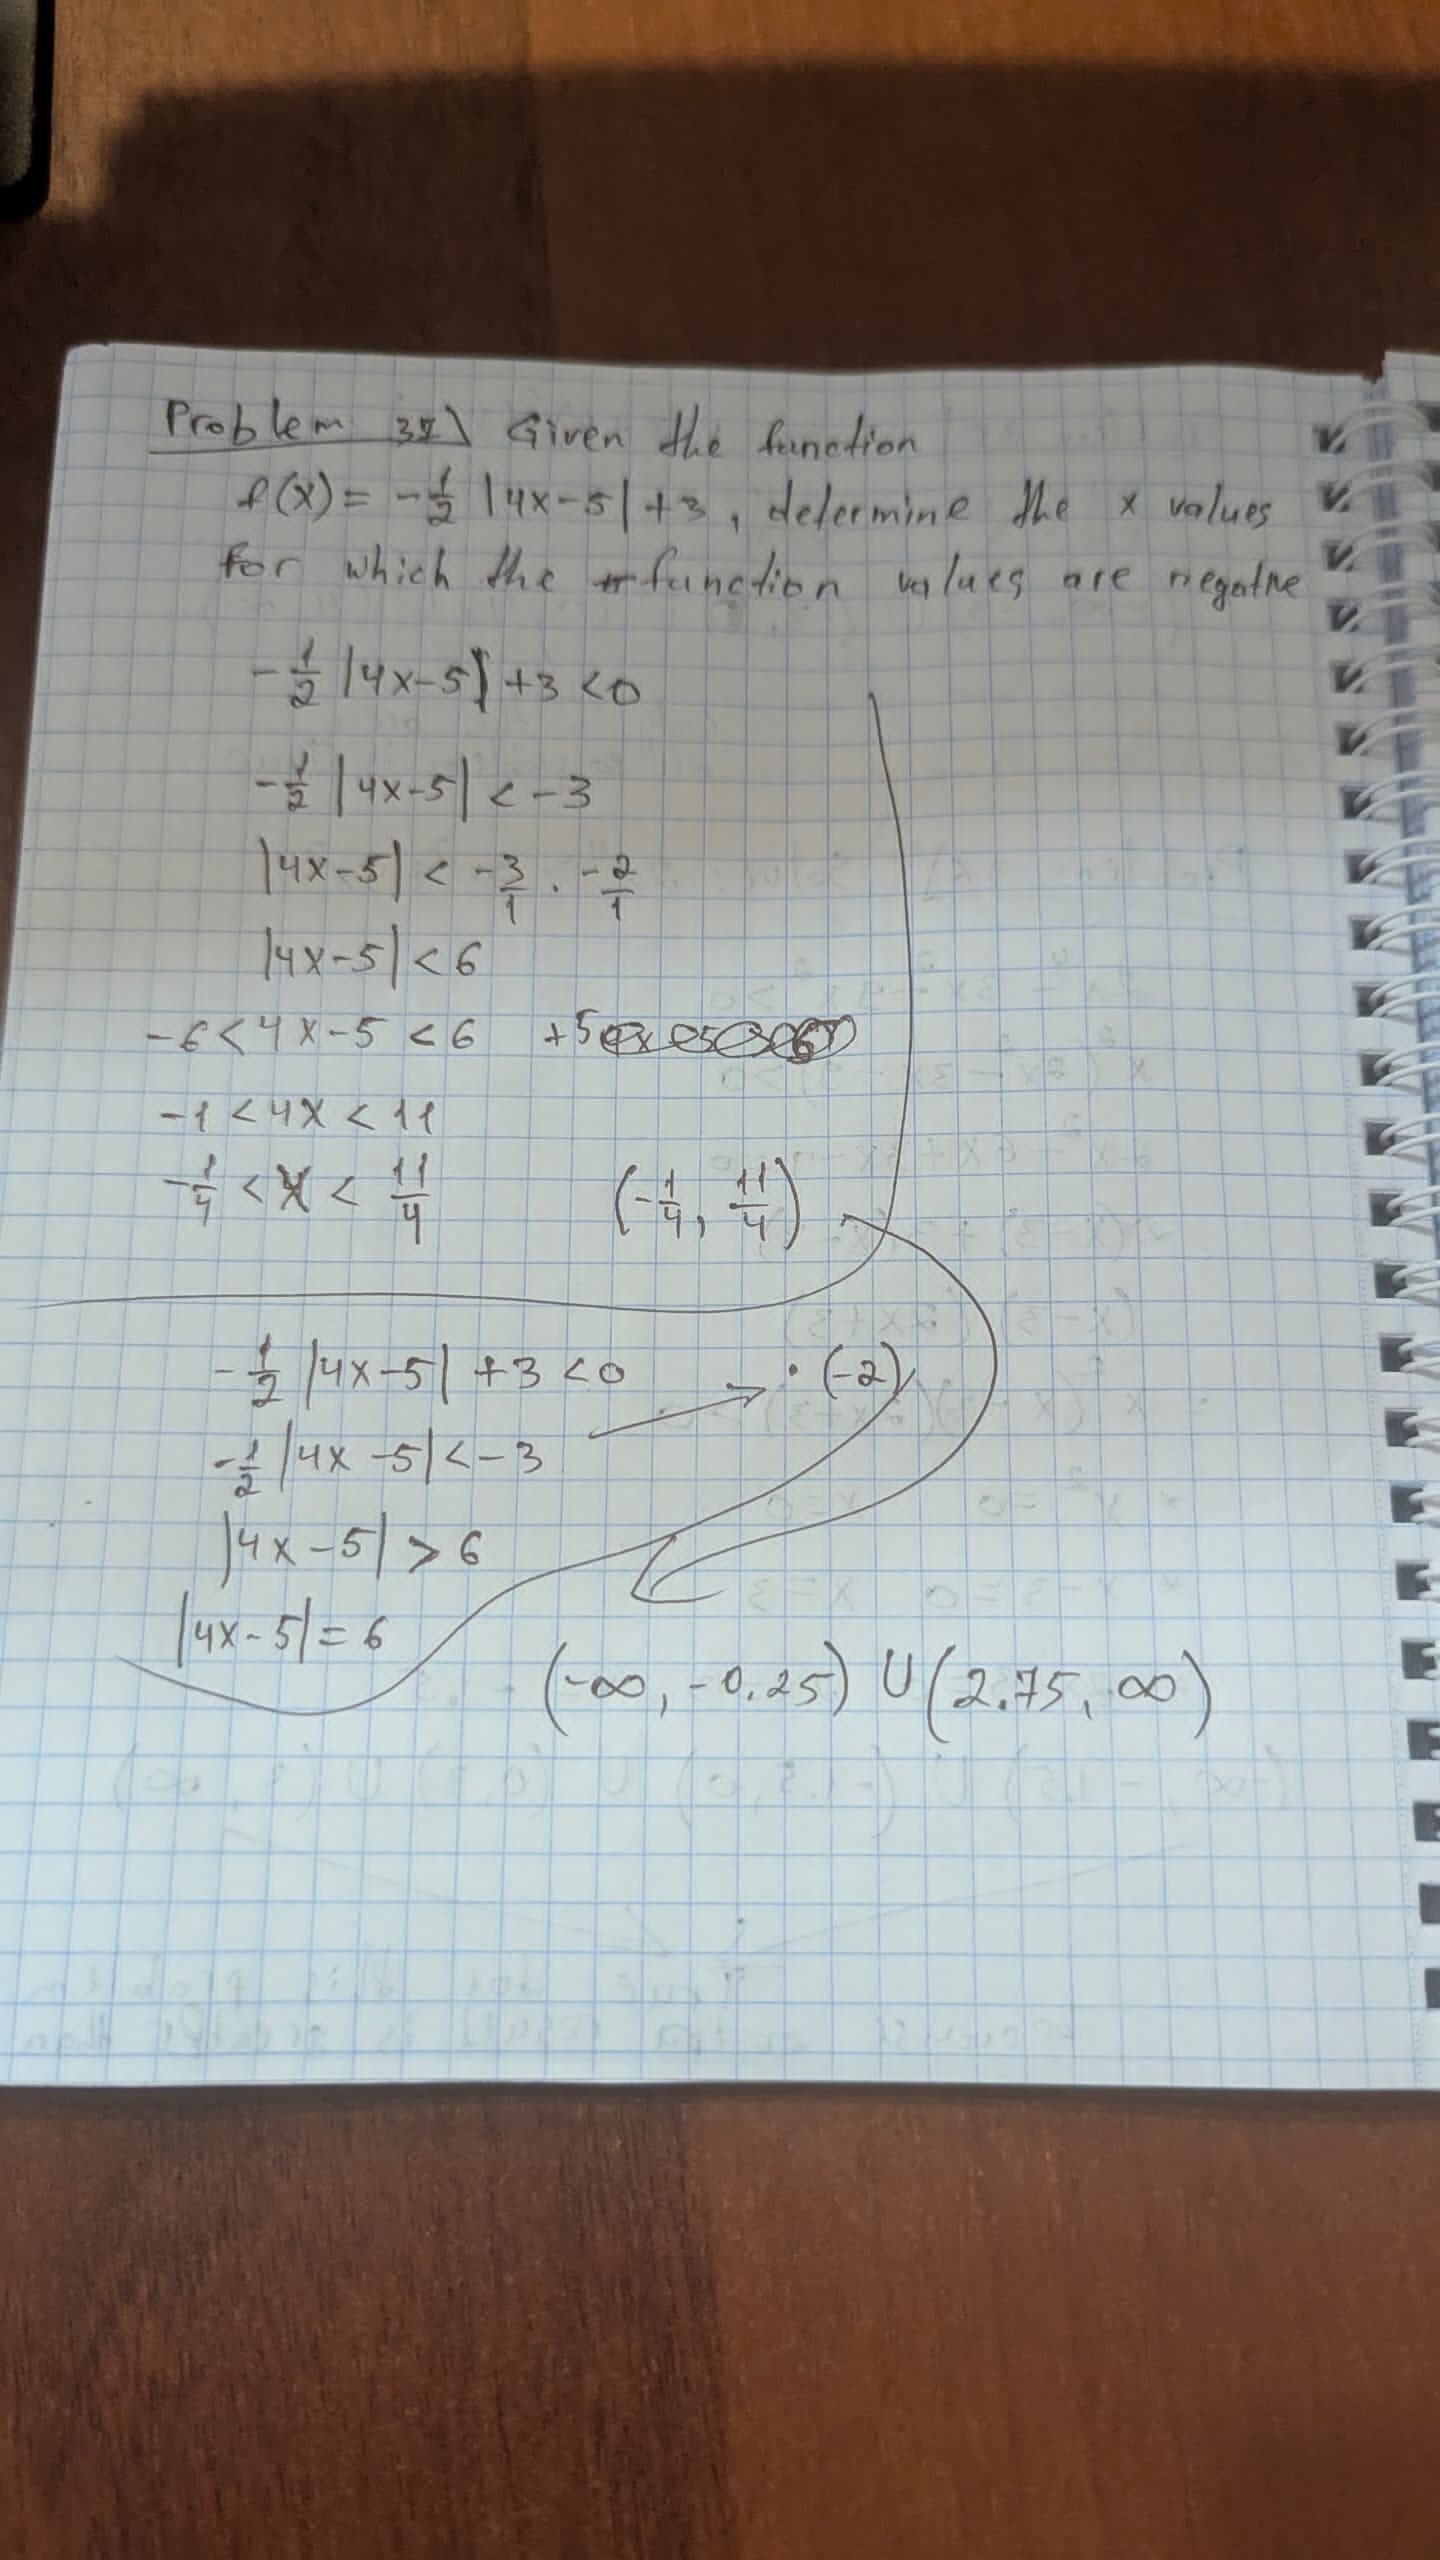 Problem 37) Given the function
f(x) = -1/2 |4x-5| +3, determine the x values
for which the function values are negative
-1/2 |4x-5| +3 <0
-1/2 |4x-5| < -3
|4x-5| < -3/1 · -2/1
|4x-5| < 6
-6 < 4x-5 < 6 +5
-1 < 4x < 11
-1/4 < x < 11/4 (-1/4, 11/4)
-1/2 |4x-5| +3 < 0 · (-2)
-1/2 |4x-5| < -3
|4x-5| > 6
|4x-5| = 6
(-∞, -0.25) U (2.75, ∞)